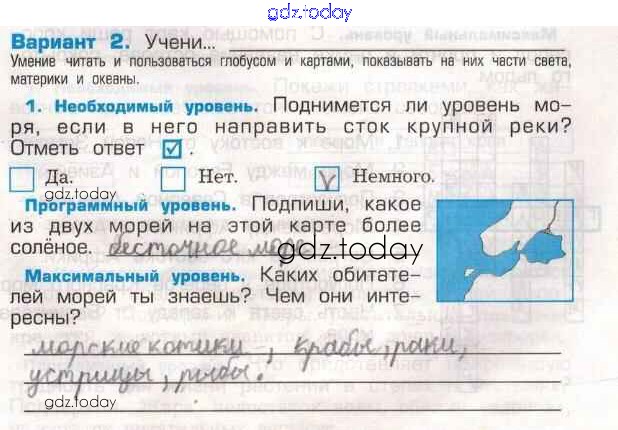 gdz.today
Вариант 2. Учени...
Умение читать и пользоваться глобусом и картами, показывать на них части света,
материки и океаны.
1. Необходимый уровень. Поднимется ли уровень мо-
ря, если в него направить сток крупной реки?
Отметь ответ ☑.
Да. Нет. V Немного.
gdz.today gdz.today gdz.today
Программный уровень. Подпиши, какое
из двух морей на этой карте более
солёное. бесточное море
gdz.today
Максимальный уровень. Каких обитате-
лей морей ты знаешь? Чем они инте-
ресны?
морские котики, крабы, раки,
устрицы, рыбы.
gdz.today